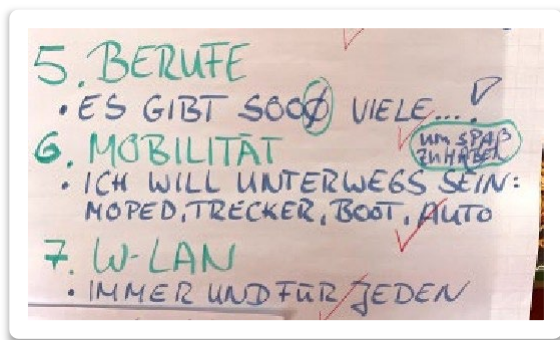 5. BERUFE
• ES GIBT SOOO VIELE....
6. MOBILITÄT
um SPAß
ZU HABEN
• ICH WILL UNTERWEGS SEIN:
MOPED, TRECKER, BOOT, AUTO
7. W-LAN
• IMMER UND FÜR JEDEN